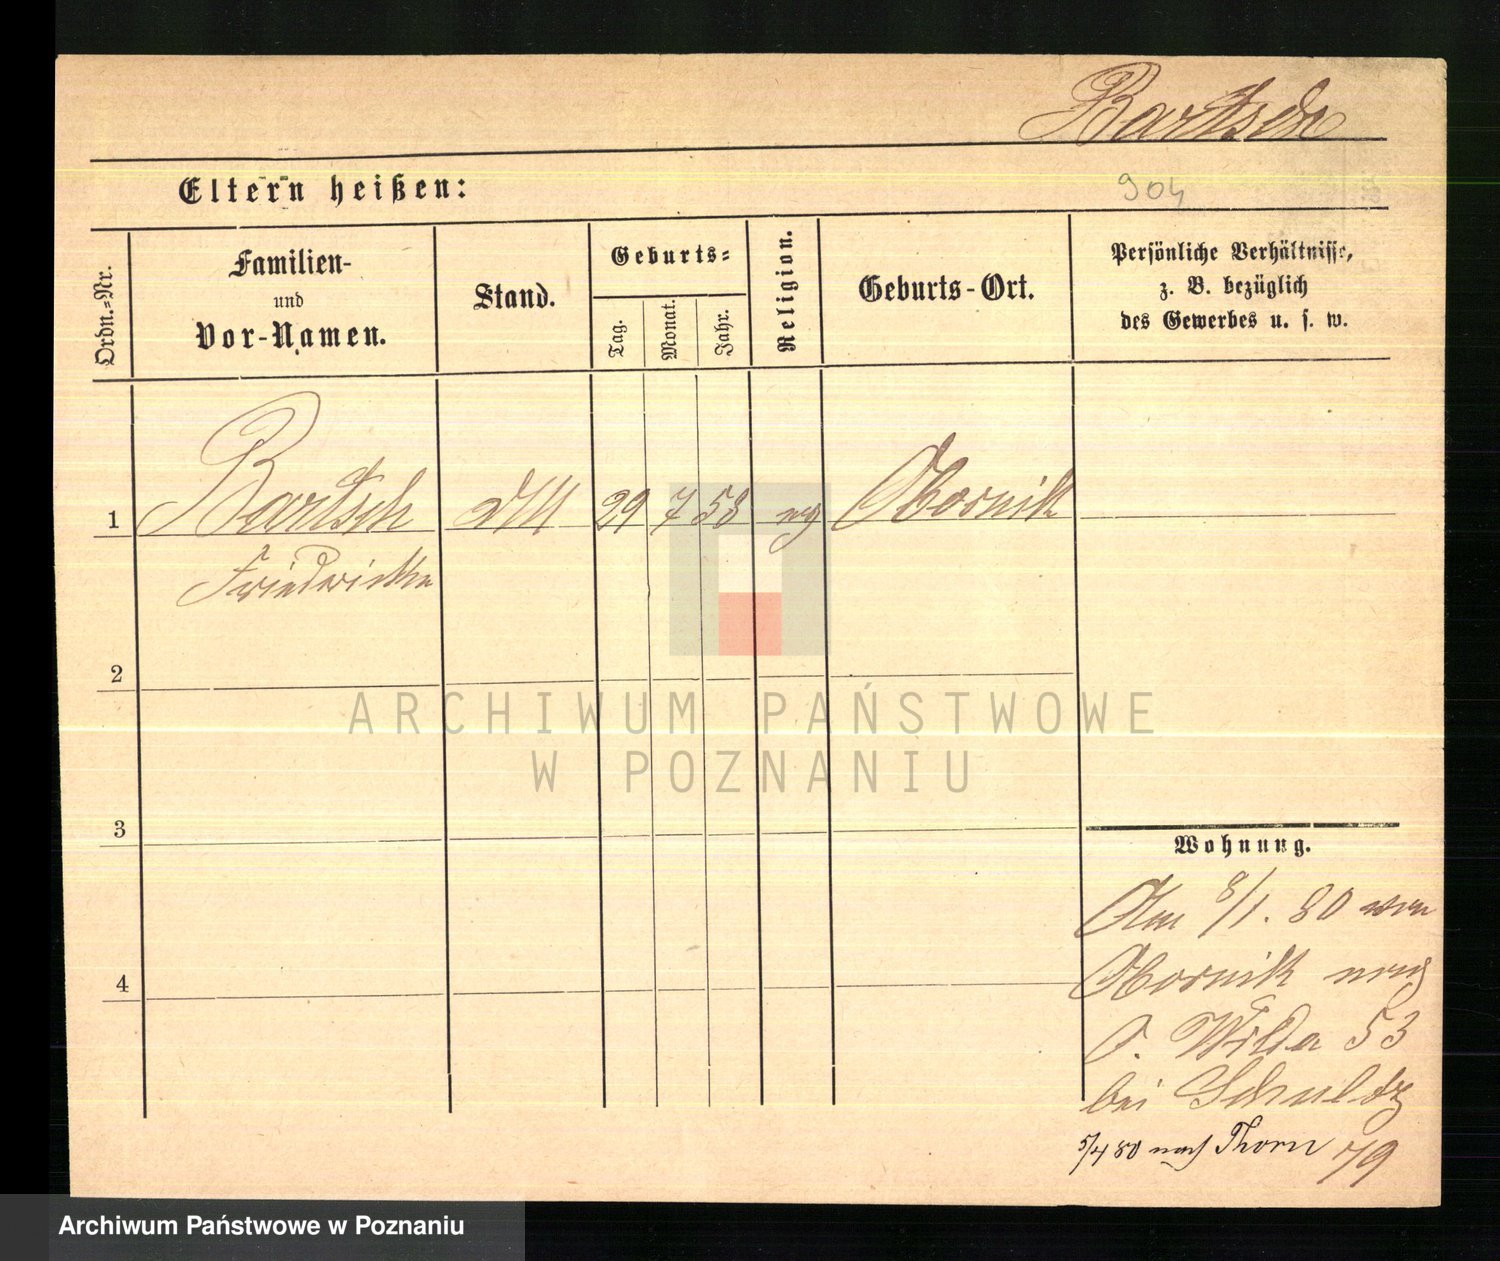 Bartsch
Eltern heißen:
904
Ordn.=Nr.
Familien-
und
Vor-Namen.
Stand.
Geburts=
Tag.
Monat.
Jahr.
Religion.
Geburts-Ort.
Persönliche Verhältnisse,
z. B. bezüglich
des Gewerbes u. s. w.
1
Bartsch
29 7 58
Obornik
Friedericke
2
ARCHIWUM PAŃSTWOWE
W POZNANIU
3
Wohnung.
Am 8/1. 80 von
Obornik nach
O. Wilda 53
bei Schultz
4
5/4 80 nach Thorn 79
Archiwum Państwowe w Poznaniu